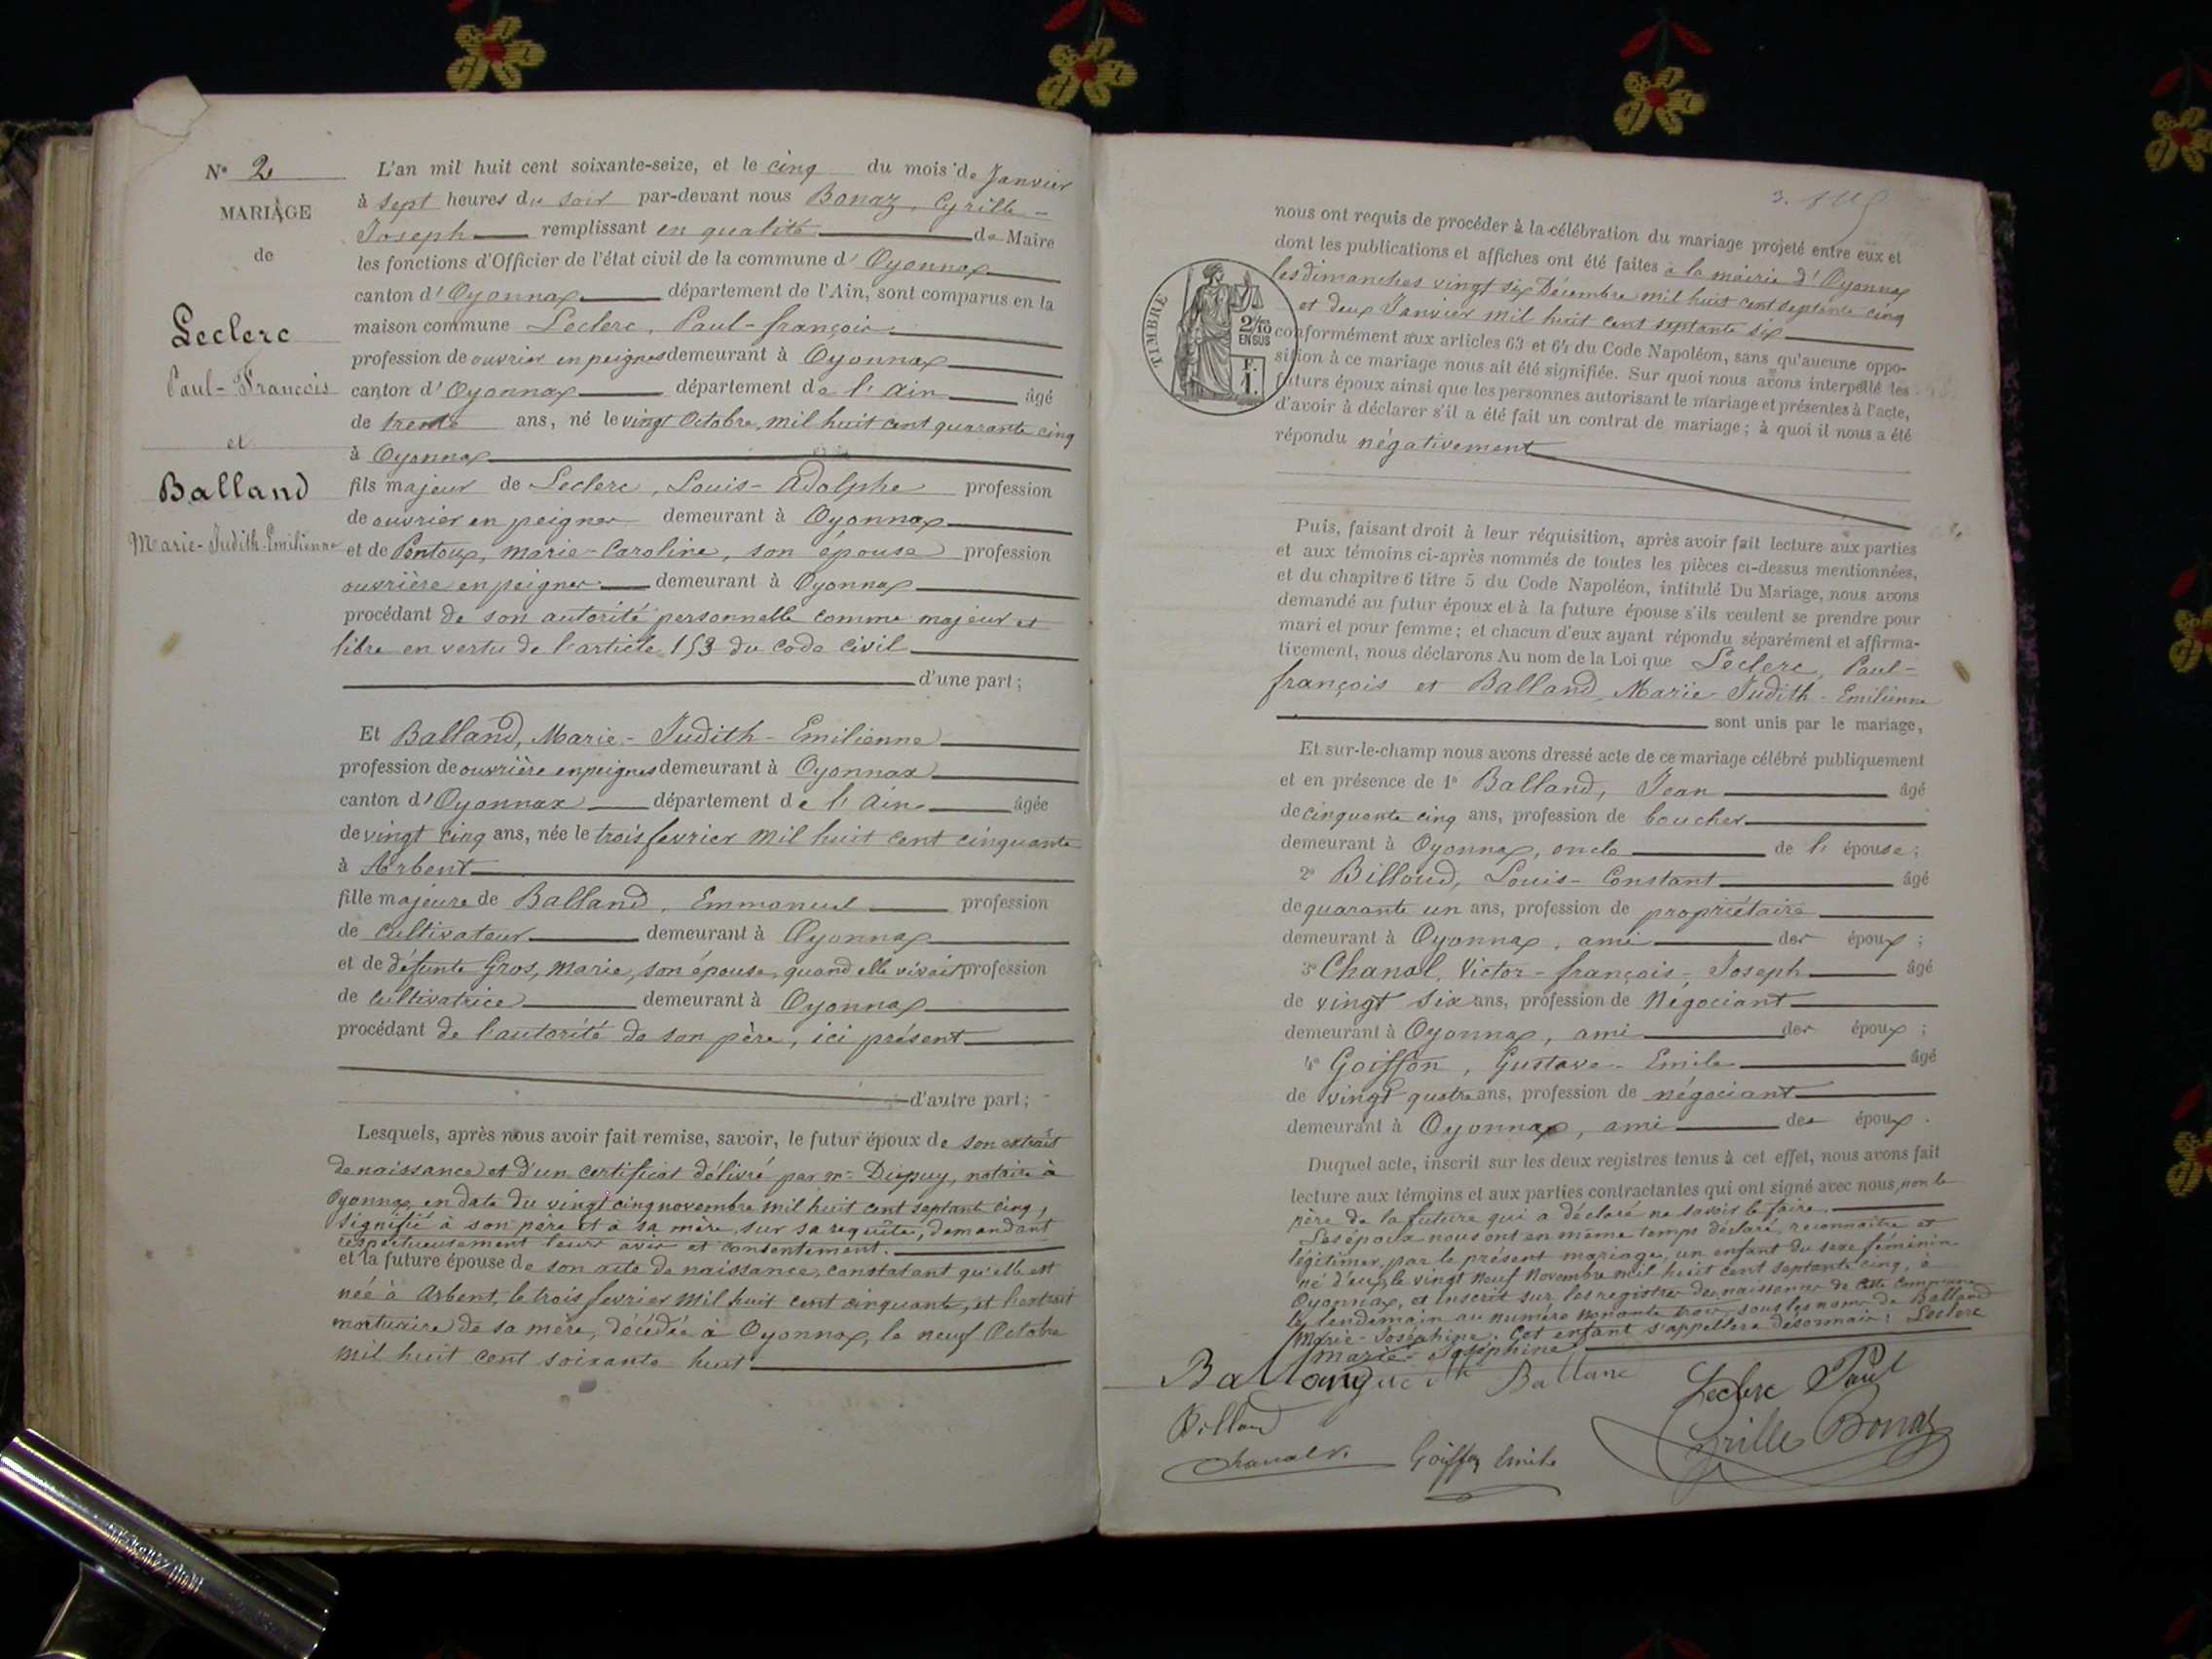 N° 2
MARIAGE
de
Leclerc
Paul-François
et
Balland
Marie-Judith-Emilienne
L'an mil huit cent soixante-seize, et le cinq du mois de Janvier
à sept heures du soir par-devant nous Bonaz, Cyrille-
Joseph remplissant en qualité de Maire
les fonctions d'Officier de l'état civil de la commune d'Oyonnax
canton d'Oyonnax département de l'Ain, sont comparus en la
maison commune Leclerc, Paul-françois
profession de ouvrier en peignes demeurant à Oyonnax
canton d'Oyonnax département de l'Ain âgé
de trente ans, né le vingt Octobre, mil huit cent quarante cinq
à Oyonnax
fils majeur de Leclerc, Louis-Adolphe profession
de ouvrier en peignes demeurant à Oyonnax
et de Pontoux, Marie-Caroline, son épouse profession
ouvrière en peignes demeurant à Oyonnax
procédant de son autorité personnelle comme majeur et
libre en vertu de l'article 153 du code civil
d'une part;
Et Balland, Marie-Judith-Emilienne
profession de ouvrière en peignes demeurant à Oyonnax
canton d'Oyonnax département de l'Ain âgée
de vingt cinq ans, née le trois fevrier mil huit cent cinquante
à Arbent
fille majeure de Balland, Emmanuel profession
de cultivateur demeurant à Oyonnax
et de défunte Gros, Marie, son épouse, quand elle vivait profession
de cultivatrice demeurant à Oyonnax
procédant de l'autorité de son père, ici présent
d'autre part;
Lesquels, après nous avoir fait remise, savoir, le futur époux de son extrait
de naissance et d'un certificat délivré par Mre Dupuy, notaire à
Oyonnax, en date du vingt cinq novembre mil huit cent septante cinq,
signifié à son père et à sa mère, sur sa requête, demandant
respectueusement leurs avis et consentement.
et la future épouse de son acte de naissance, constatant qu'elle est
née à Arbent, le trois fevrier mil huit cent cinquante, et l'extrait
mortuaire de sa mère, décédée à Oyonnax, le neuf Octobre
mil huit cent soixante huit
nous ont requis de procéder à la célébration du mariage projeté entre eux et
dont les publications et affiches ont été faites à la mairie d'Oyonnax
les dimanches vingt six Décembre mil huit cent septante cinq
et deux Janvier mil huit cent septante six
TIMBRE
2/10
EN SUS
F.
1.
conformément aux articles 63 et 64 du Code Napoléon, sans qu'aucune oppo-
sition à ce mariage nous ait été signifiée. Sur quoi nous avons interpellé les
futurs époux ainsi que les personnes autorisant le mariage et présentes à l'acte,
d'avoir à déclarer s'il a été fait un contrat de mariage; à quoi il nous a été
répondu négativement
Puis, faisant droit à leur réquisition, après avoir fait lecture aux parties
et aux témoins ci-après nommés de toutes les pièces ci-dessus mentionnées,
et du chapitre 6 titre 5 du Code Napoléon, intitulé Du Mariage, nous avons
demandé au futur époux et à la future épouse s'ils veulent se prendre pour
mari et pour femme; et chacun d'eux ayant répondu séparément et affirma-
tivement, nous déclarons Au nom de la Loi que Leclerc, Paul-
françois et Balland, Marie-Judith-Emilienne
sont unis par le mariage,
Et sur-le-champ nous avons dressé acte de ce mariage célébré publiquement
et en présence de 1° Balland, Jean âgé
de cinquante cinq ans, profession de boucher
demeurant à Oyonnax, oncle de l'épouse;
2° Billoud, Louis-Constant âgé
de quarante un ans, profession de propriétaire
demeurant à Oyonnax, ami des époux;
3° Chanal, Victor-françois-Joseph âgé
de vingt six ans, profession de Négociant
demeurant à Oyonnax, ami des époux;
4° Goiffon, Gustave-Emile âgé
de vingt quatre ans, profession de négociant
demeurant à Oyonnax, ami des époux.
Duquel acte, inscrit sur les deux registres tenus à cet effet, nous avons fait
lecture aux témoins et aux parties contractantes qui ont signé avec nous, non le
père de la future qui a déclaré ne savoir le faire.
Les époux nous ont en même temps déclaré, reconnaître et
légitimer, par le présent mariage, un enfant du sexe féminin
né d'eux, le vingt neuf Novembre mil huit cent septante cinq, à
Oyonnax, et inscrit sur les registres des naissances de cette commune
le lendemain au numéro nonante trois, sous les noms de Balland
Marie-Joséphine. Cet enfant s'appellera désormais: Leclerc
Marie-Joséphine
Balland Leclerc Paul
Billoud Cyrille Bonaz
Chanal V. Goiffon Emile